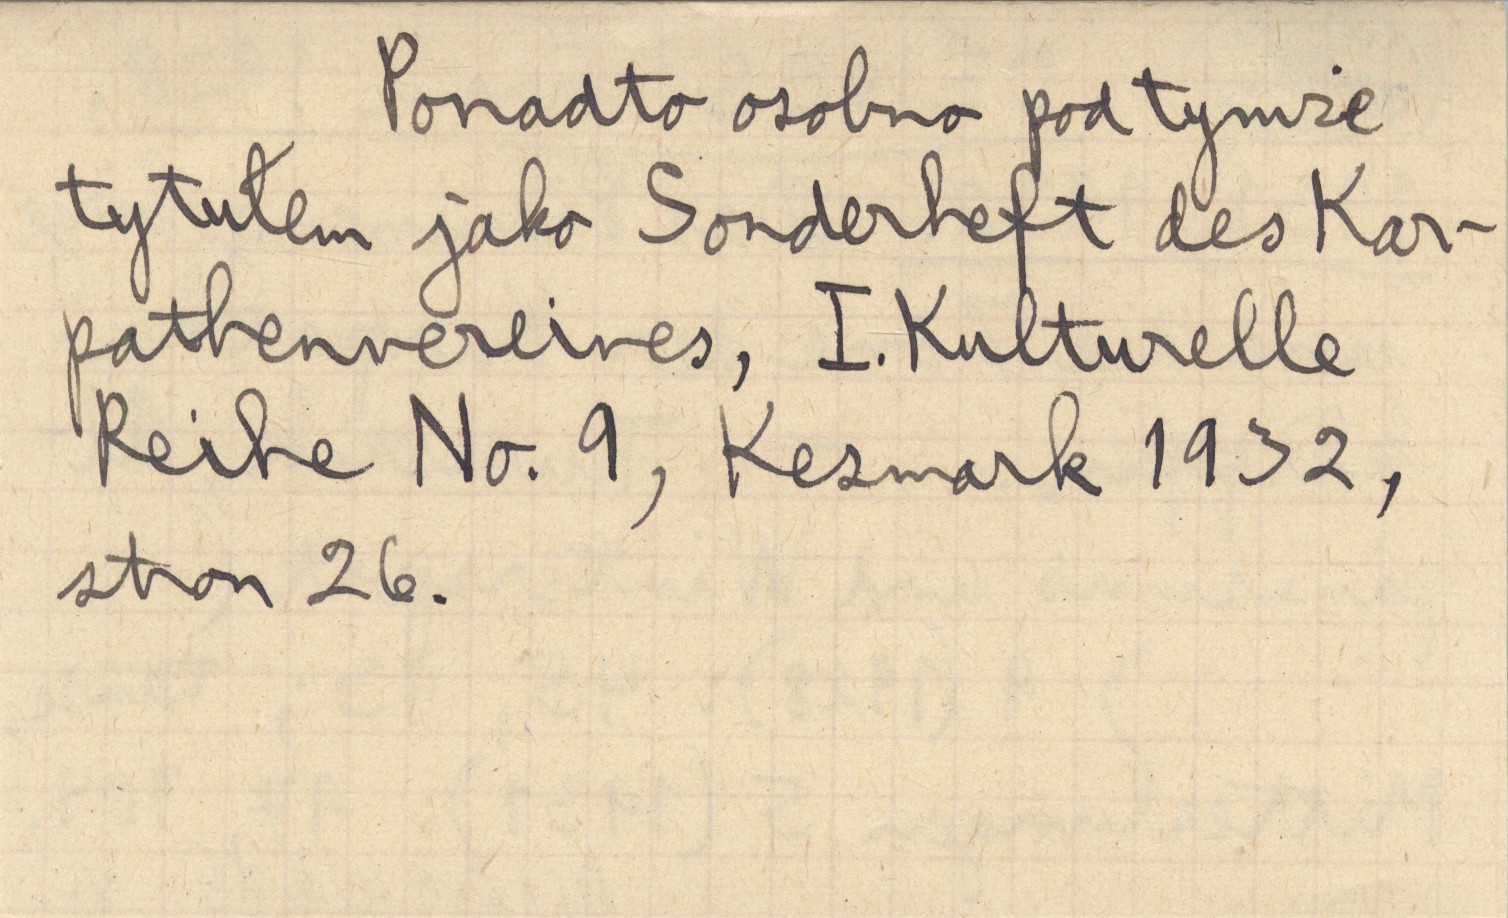 Ponadto osobno pod tymże
tytułem jako Sonderheft des Kar-
pathenvereines, I. Kulturelle
Reihe No. 9, Kesmark 1932,
stron 26.